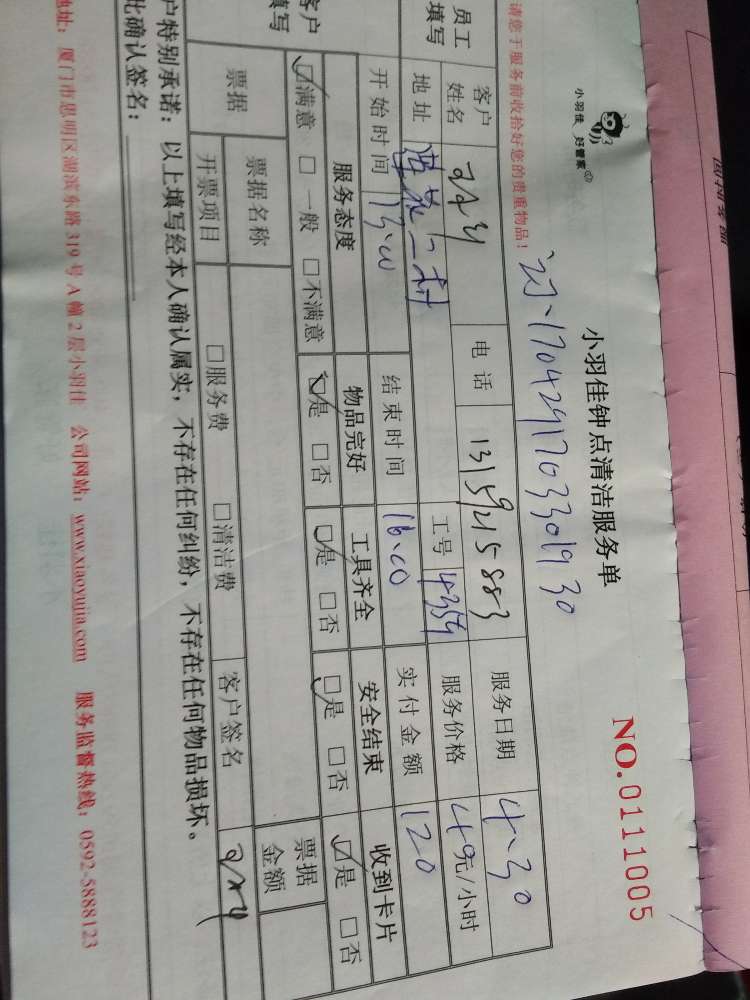 小羽佳 好管家
小羽佳钟点清洁服务单
NO.0111005
1704291703301930
请您于服务前收拾好您的贵重物品！
员工填写
客户姓名 电话 13159215883 服务日期 4.30
地址 工号 4354 服务价格 40元/小时
开始时间 13:00 结束时间 16:00 实付金额 120
客户填写
服务态度 物品完好 工具齐全 安全结束 收到卡片
☑满意 □一般 □不满意 ☑是 □否 ☑是 □否 ☑是 □否 ☑是 □否
票据 票据名称 票据金额
开票项目 □服务费 □清洁费 客户签名
户特别承诺：以上填写经本人确认属实，不存在任何纠纷，不存在任何物品损坏。
此确认签名：
地址：厦门市思明区湖滨东路319号A幢2层小羽佳 公司网站：www.xiaoyujia.com 服务监督热线：0592-5888123